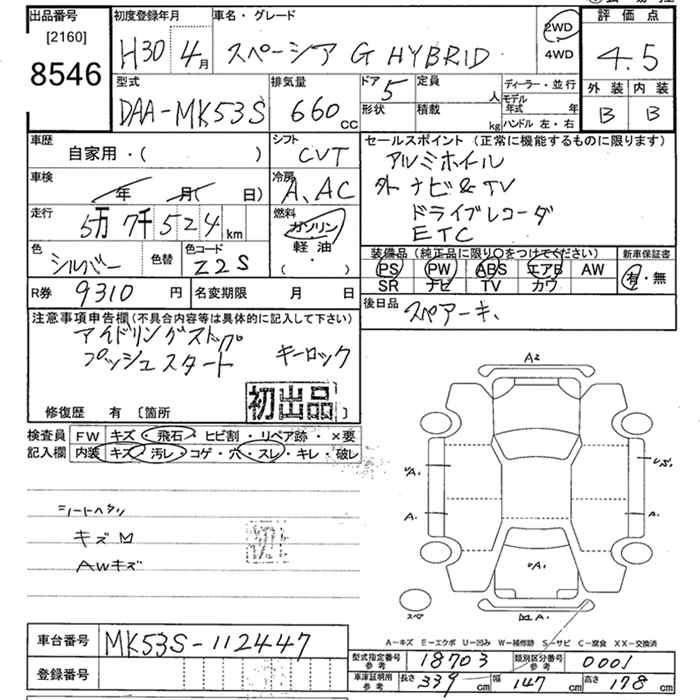 出品番号
[2160]
8546
初度登録年月
H30 4月
車名・グレード
スペーシア G HYBRID
2WD
4WD
評価点
4.5
外装 内装
B B
型式
DAA-MK53S
排気量
660 cc
ドア 5
形状
定員 人
積載 kg
ディーラー・並行
モデル年式 年
ハンドル 左・右
車歴
自家用・( )
シフト
CVT
セールスポイント(正常に機能するものに限ります)
アルミホイル
外 ナビ&TV
ドライブレコーダ
ETC
車検
年 月( 日)
冷房
A、AC
走行
5万 7千 5 2 4 km
燃料
ガソリン
軽油
( ・ )
色
シルバー
色替
色コード
Z2S
装備品(純正品に限り○をつけてください)
PS PW ABS エアB AW
SR ナビ TV カワ
新車保証書
有・無
R券 9310 円
名変期限 月 日
後日品
スペアーキ、
注意事項申告欄(不具合内容等は具体的に記入して下さい)
アイドリングストップ
プッシュスタート キーロック
初出品
修復歴 有 〔箇所 〕
検査員記入欄
FW キズ・飛石・ヒビ割・リペア跡・×要
内装 キズ・汚レ・コゲ・穴・スレ・キレ・破レ
シートヘタリ
キズM
AWキズ
初
A2
A.
A.
スペ
A-キズ E-エクボ U-凹み W-補修跡 S-サビ C-腐食 XX-交換済
車台番号 MK53S-112447
登録番号
型式指定番号 参考 18703
類別区分番号 参考 0001
車庫証明用 参考 長さ 339 cm 幅 147 cm 高さ 178 cm